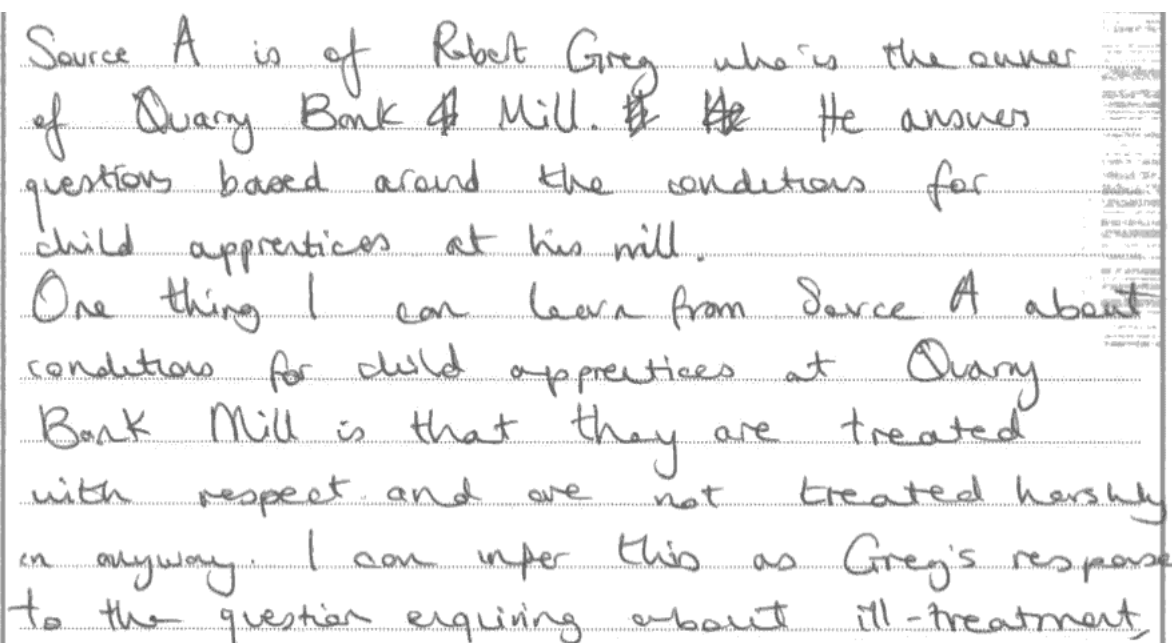 Source A is of Robert Greg who is the owner
of Quarry Bank Mill. He answers
questions based around the conditions for
child apprentices at his mill.
One thing I can learn from Source A about
conditions for child apprentices at Quarry
Bank Mill is that they are treated
with respect and are not treated harshly
in anyway. I can infer this as Greg's response
to the question enquiring about ill-treatment,